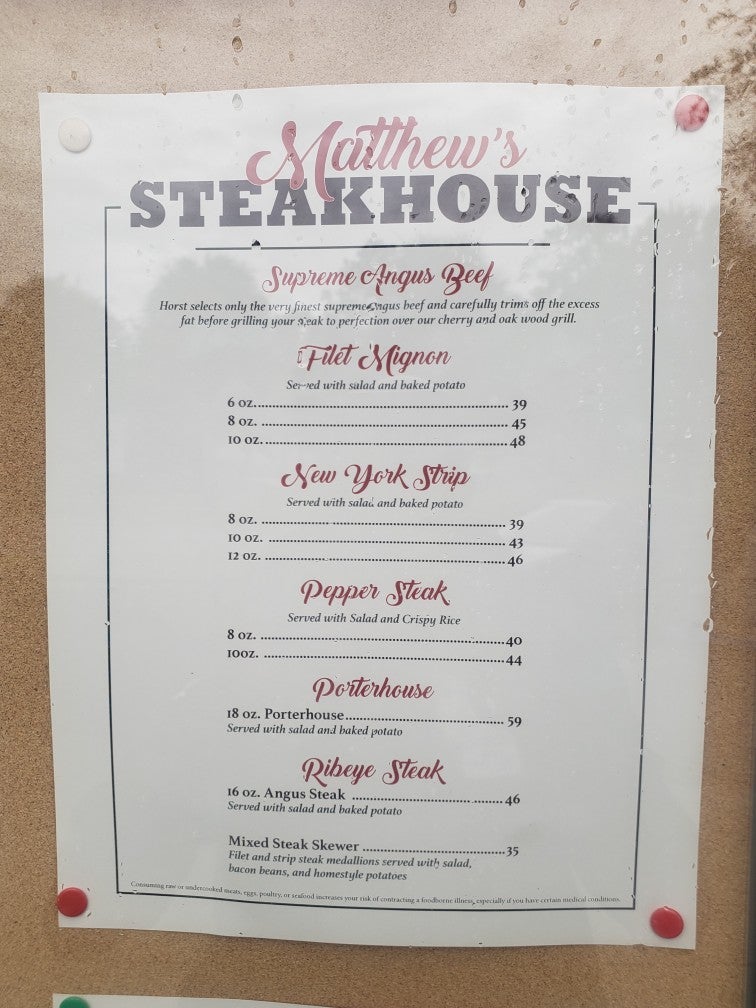 Matthew's
STEAKHOUSE
Supreme Angus Beef
Horst selects only the very finest supreme Angus beef and carefully trims off the excess
fat before grilling your steak to perfection over our cherry and oak wood grill.
Filet Mignon
Served with salad and baked potato
6 oz. 39
8 oz. 45
10 oz. 48
New York Strip
Served with salad and baked potato
8 oz. 39
10 oz. 43
12 oz. 46
Pepper Steak
Served with Salad and Crispy Rice
8 oz. 40
10oz. 44
Porterhouse
18 oz. Porterhouse 59
Served with salad and baked potato
Ribeye Steak
16 oz. Angus Steak 46
Served with salad and baked potato
Mixed Steak Skewer 35
Filet and strip steak medallions served with salad,
bacon beans, and homestyle potatoes
Consuming raw or undercooked meats, eggs, poultry, or seafood increases your risk of contracting a foodborne illness, especially if you have certain medical conditions.